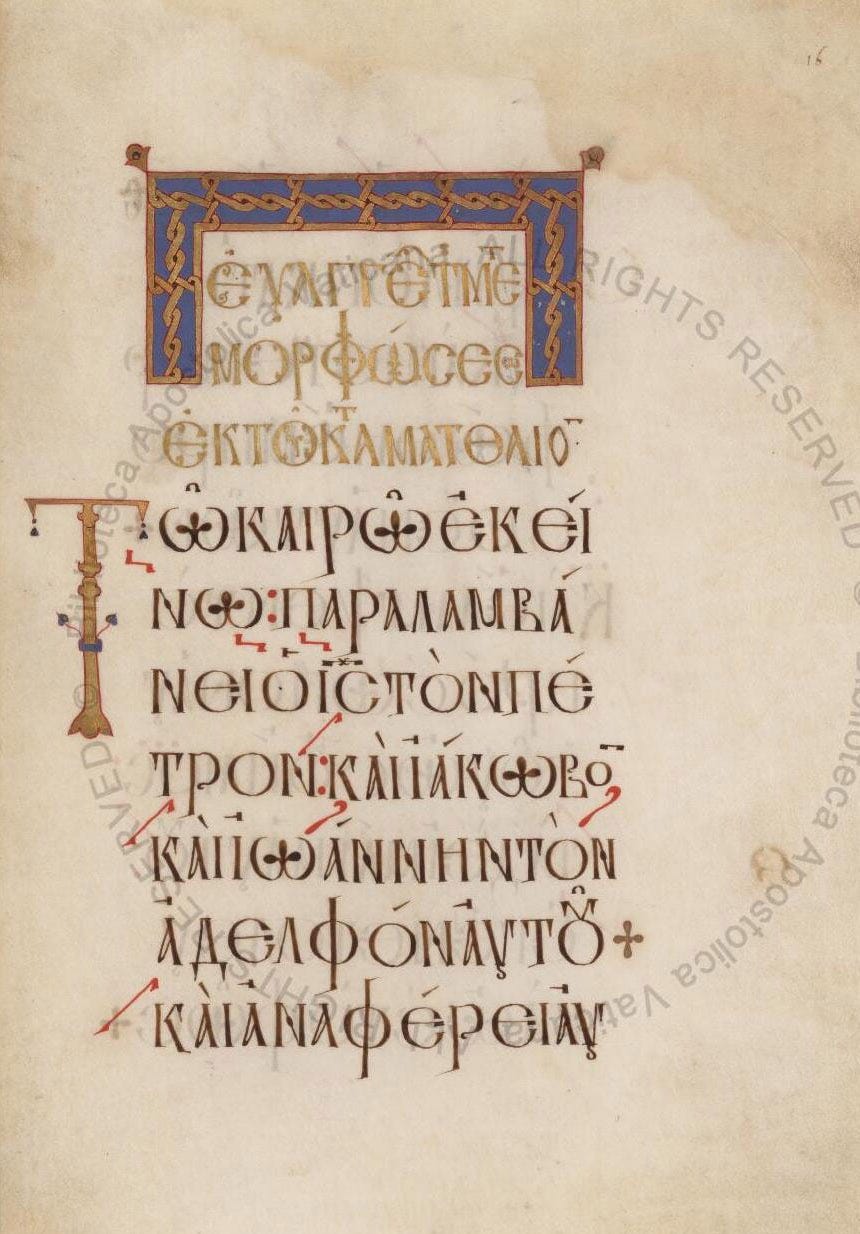 16
ἐυαγγε τ μετ
μορφώσεως
ἐκ τοῦ κατ̀ὰ ματθαιο
Τῶ καιρῶ ἐκεί
νω: παραλαμβά
νει ὁ ῑς̄ τὸν πέ
τρον: κὰι ἰάκωβο
κὰι ἰωάννην τὸν
ἀδελφὸν ἀυτοῦ +
κὰι ἀναφέρει ἀυ
© Biblioteca Apostolica Vaticana ALL RIGHTS RESERVED